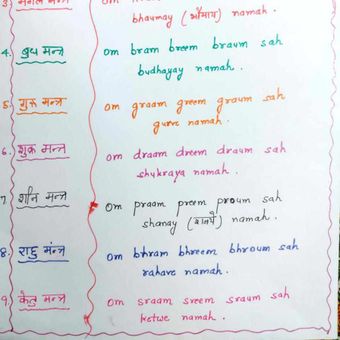 3) मंगल मन्त्र
bhaumay (भौमाय) namah.
4. बुध मन्त्र om bram breem braum sah
budhayay namah.
5. गुरू मन्त्र om graam greem graum sah
gurve namah.
6. शुक्र मन्त्र om draam dreem draum sah
shukraya namah.
7 शनि मन्त्र om praam preem proum sah
shanay (शनये) namah.
8. राहु मंत्र om bhram bhreem bhroum sah
rahave namah.
9. केतु मन्त्र om sraam sreem sraum sah
ketwe namah.